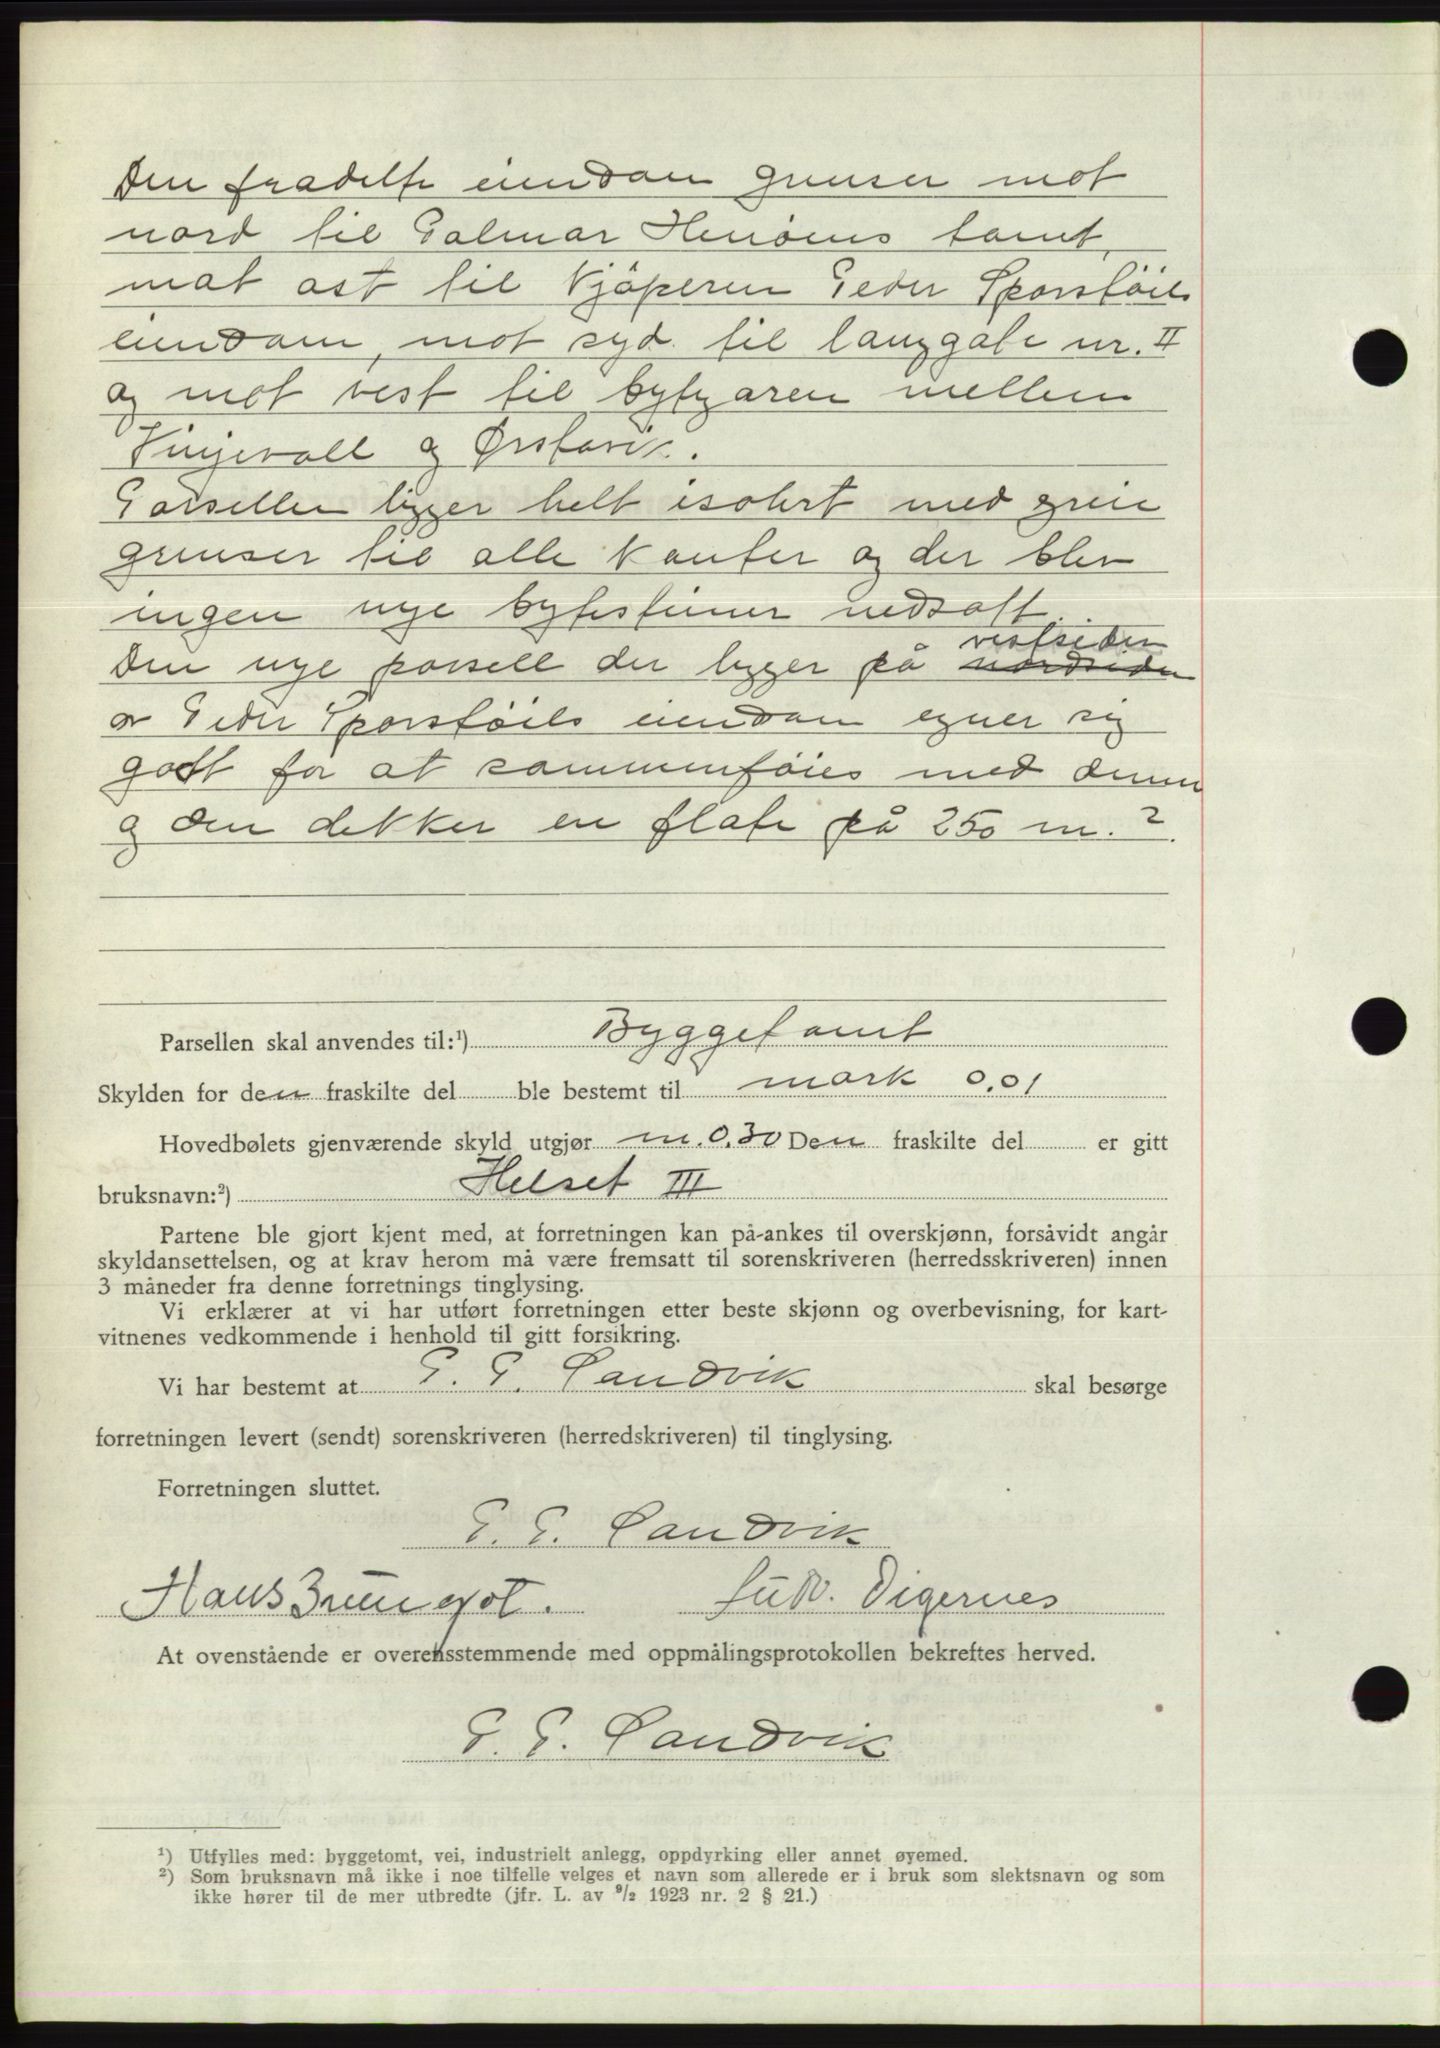 Den fradelte eiendom grenser mot
nord til Palmar Henøens tomt,
mot øst til kjøperen Peder Sporstøils
eiendom, mot syd til langgate nr. II
og mot vest til bytgaren mellem
Vinjevoll og Ørstavik.
Parsellen ligger helt isolert med greie
grenser til alle kanter og der blev
ingen nye bytesteiner nedsatt.
vestsiden
Den nye parsell der ligger på nordsiden
av Peder Sporstøils eiendom egner sig
godt for at sammenføies med denne
og den dekker en flate på 250 m.².
Parsellen skal anvendes til:¹) Byggetomt
Skylden for den fraskilte del ble bestemt til mark 0.01
Hovedbølets gjenværende skyld utgjør m. 0.30 Den fraskilte del er gitt
bruksnavn:²) Helset III
Partene ble gjort kjent med, at forretningen kan på-ankes til overskjønn, forsåvidt angår
skyldansettelsen, og at krav herom må være fremsatt til sorenskriveren (herredsskriveren) innen
3 måneder fra denne forretnings tinglysing.
Vi erklærer at vi har utført forretningen etter beste skjønn og overbevisning, for kart-
vitnenes vedkommende i henhold til gitt forsikring.
Vi har bestemt at P. P. Sandvik skal besørge
forretningen levert (sendt) sorenskriveren (herredskriveren) til tinglysing.
Forretningen sluttet.
P. P. Sandvik
Hans Brungot. Ludv. Digernes
At ovenstående er overensstemmende med oppmålingsprotokollen bekreftes herved.
P. P. Sandvik
¹) Utfylles med: byggetomt, vei, industrielt anlegg, oppdyrking eller annet øyemed.
²) Som bruksnavn må ikke i noe tilfelle velges et navn som allerede er i bruk som slektsnavn og som
ikke hører til de mer utbredte (jfr. L. av ⁹/₂ 1923 nr. 2 § 21.)